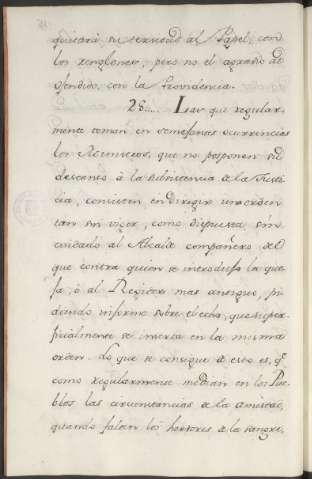 quitará su serviedad al Papel, con
los renglones, pero no el agravio al
ofendido, con la Providencia.
28.... Las que regular-
mente toman en semejantes ocurrencias
los Asumptos, que no posponen su
descanso â la subsistencia de la Justi-
cia, consisten en dirigir una orden
tan sin vigor, como dispuesta sin
cuidado al Alcalde compañero del
que contra quien se introdujo la que-
ja, ô al Regidor mas antiguo, pi-
diendo informe sobre el echo, que super-
ficialmente se inserta en la misma
orden. Lo que se consigue de esto es, q.e
como regularmente median en los Pue-
blos las circunstancias de la amistad,
quando falten los hervores de la sangre,